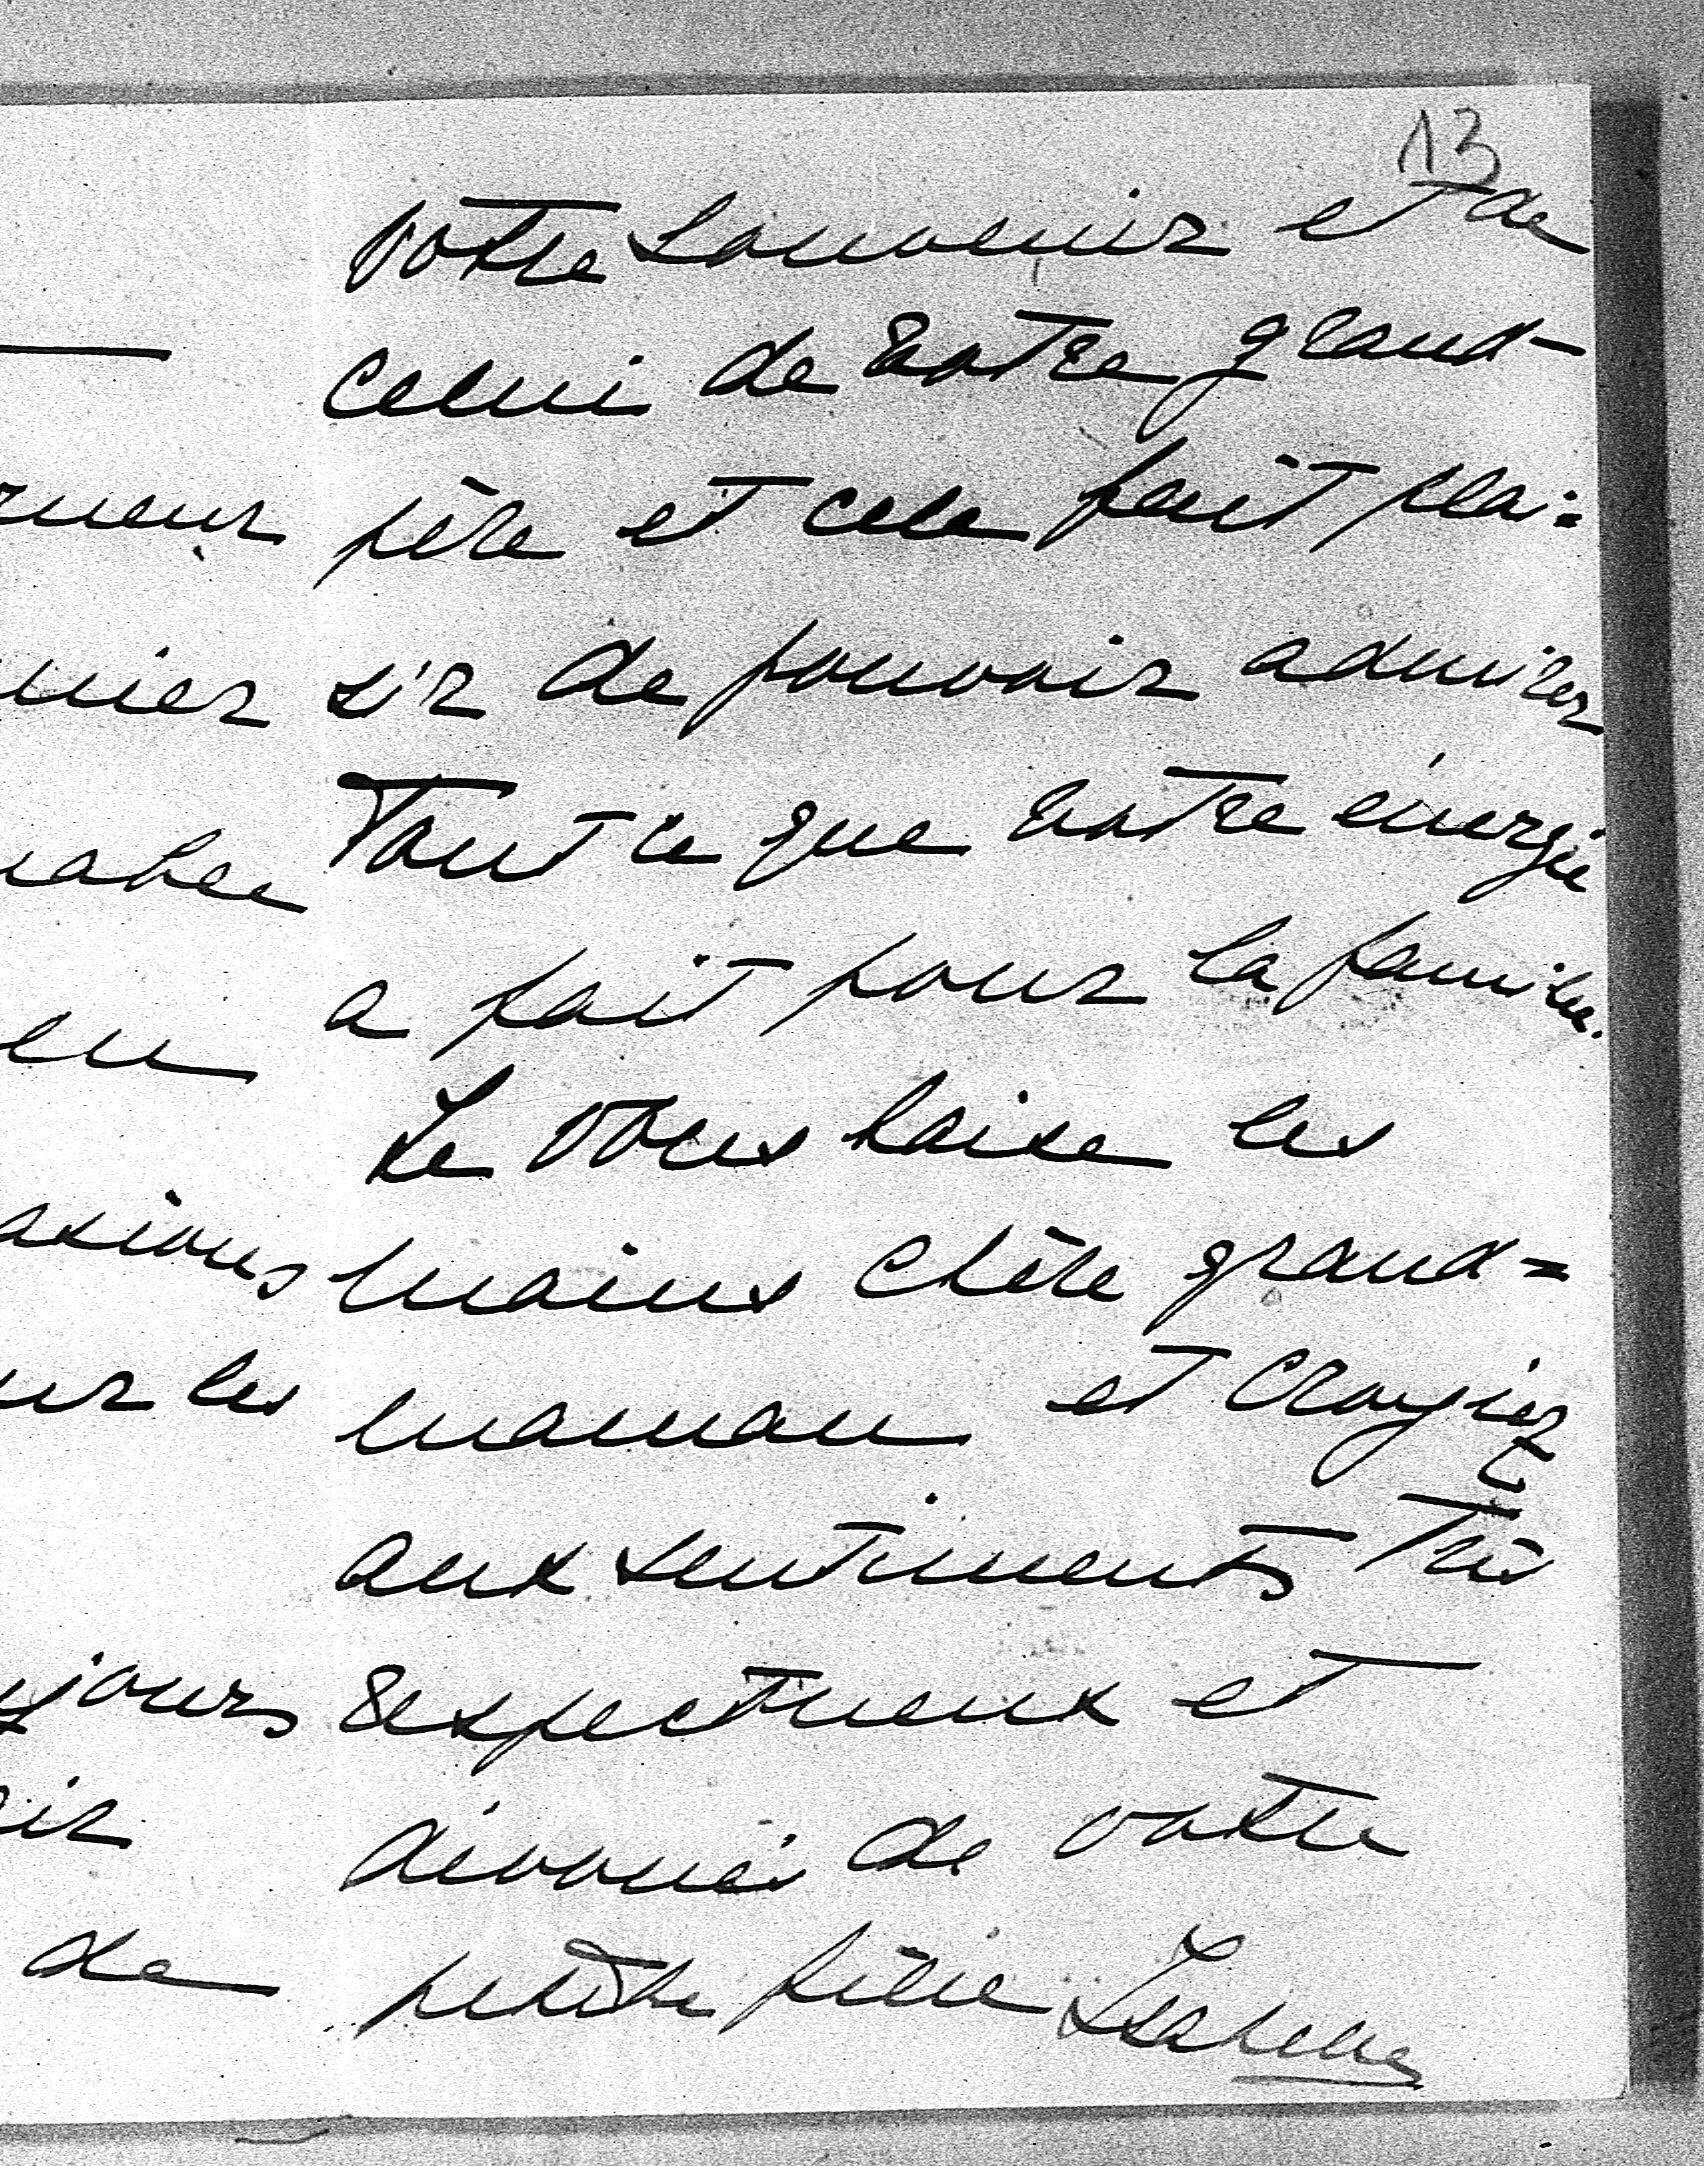 13
votre souvenir et de
celui de votre grand-
père et cela fait plai=
sir de pouvoir admirer
Tout ce que votre énergie
a fait pour la famille.
Je vous baise les
mains chère grand=
maman et croyiez
aux sentiments très
respectueux et
dévoués de votre
petite fille Isabelle
jours
ur les
de